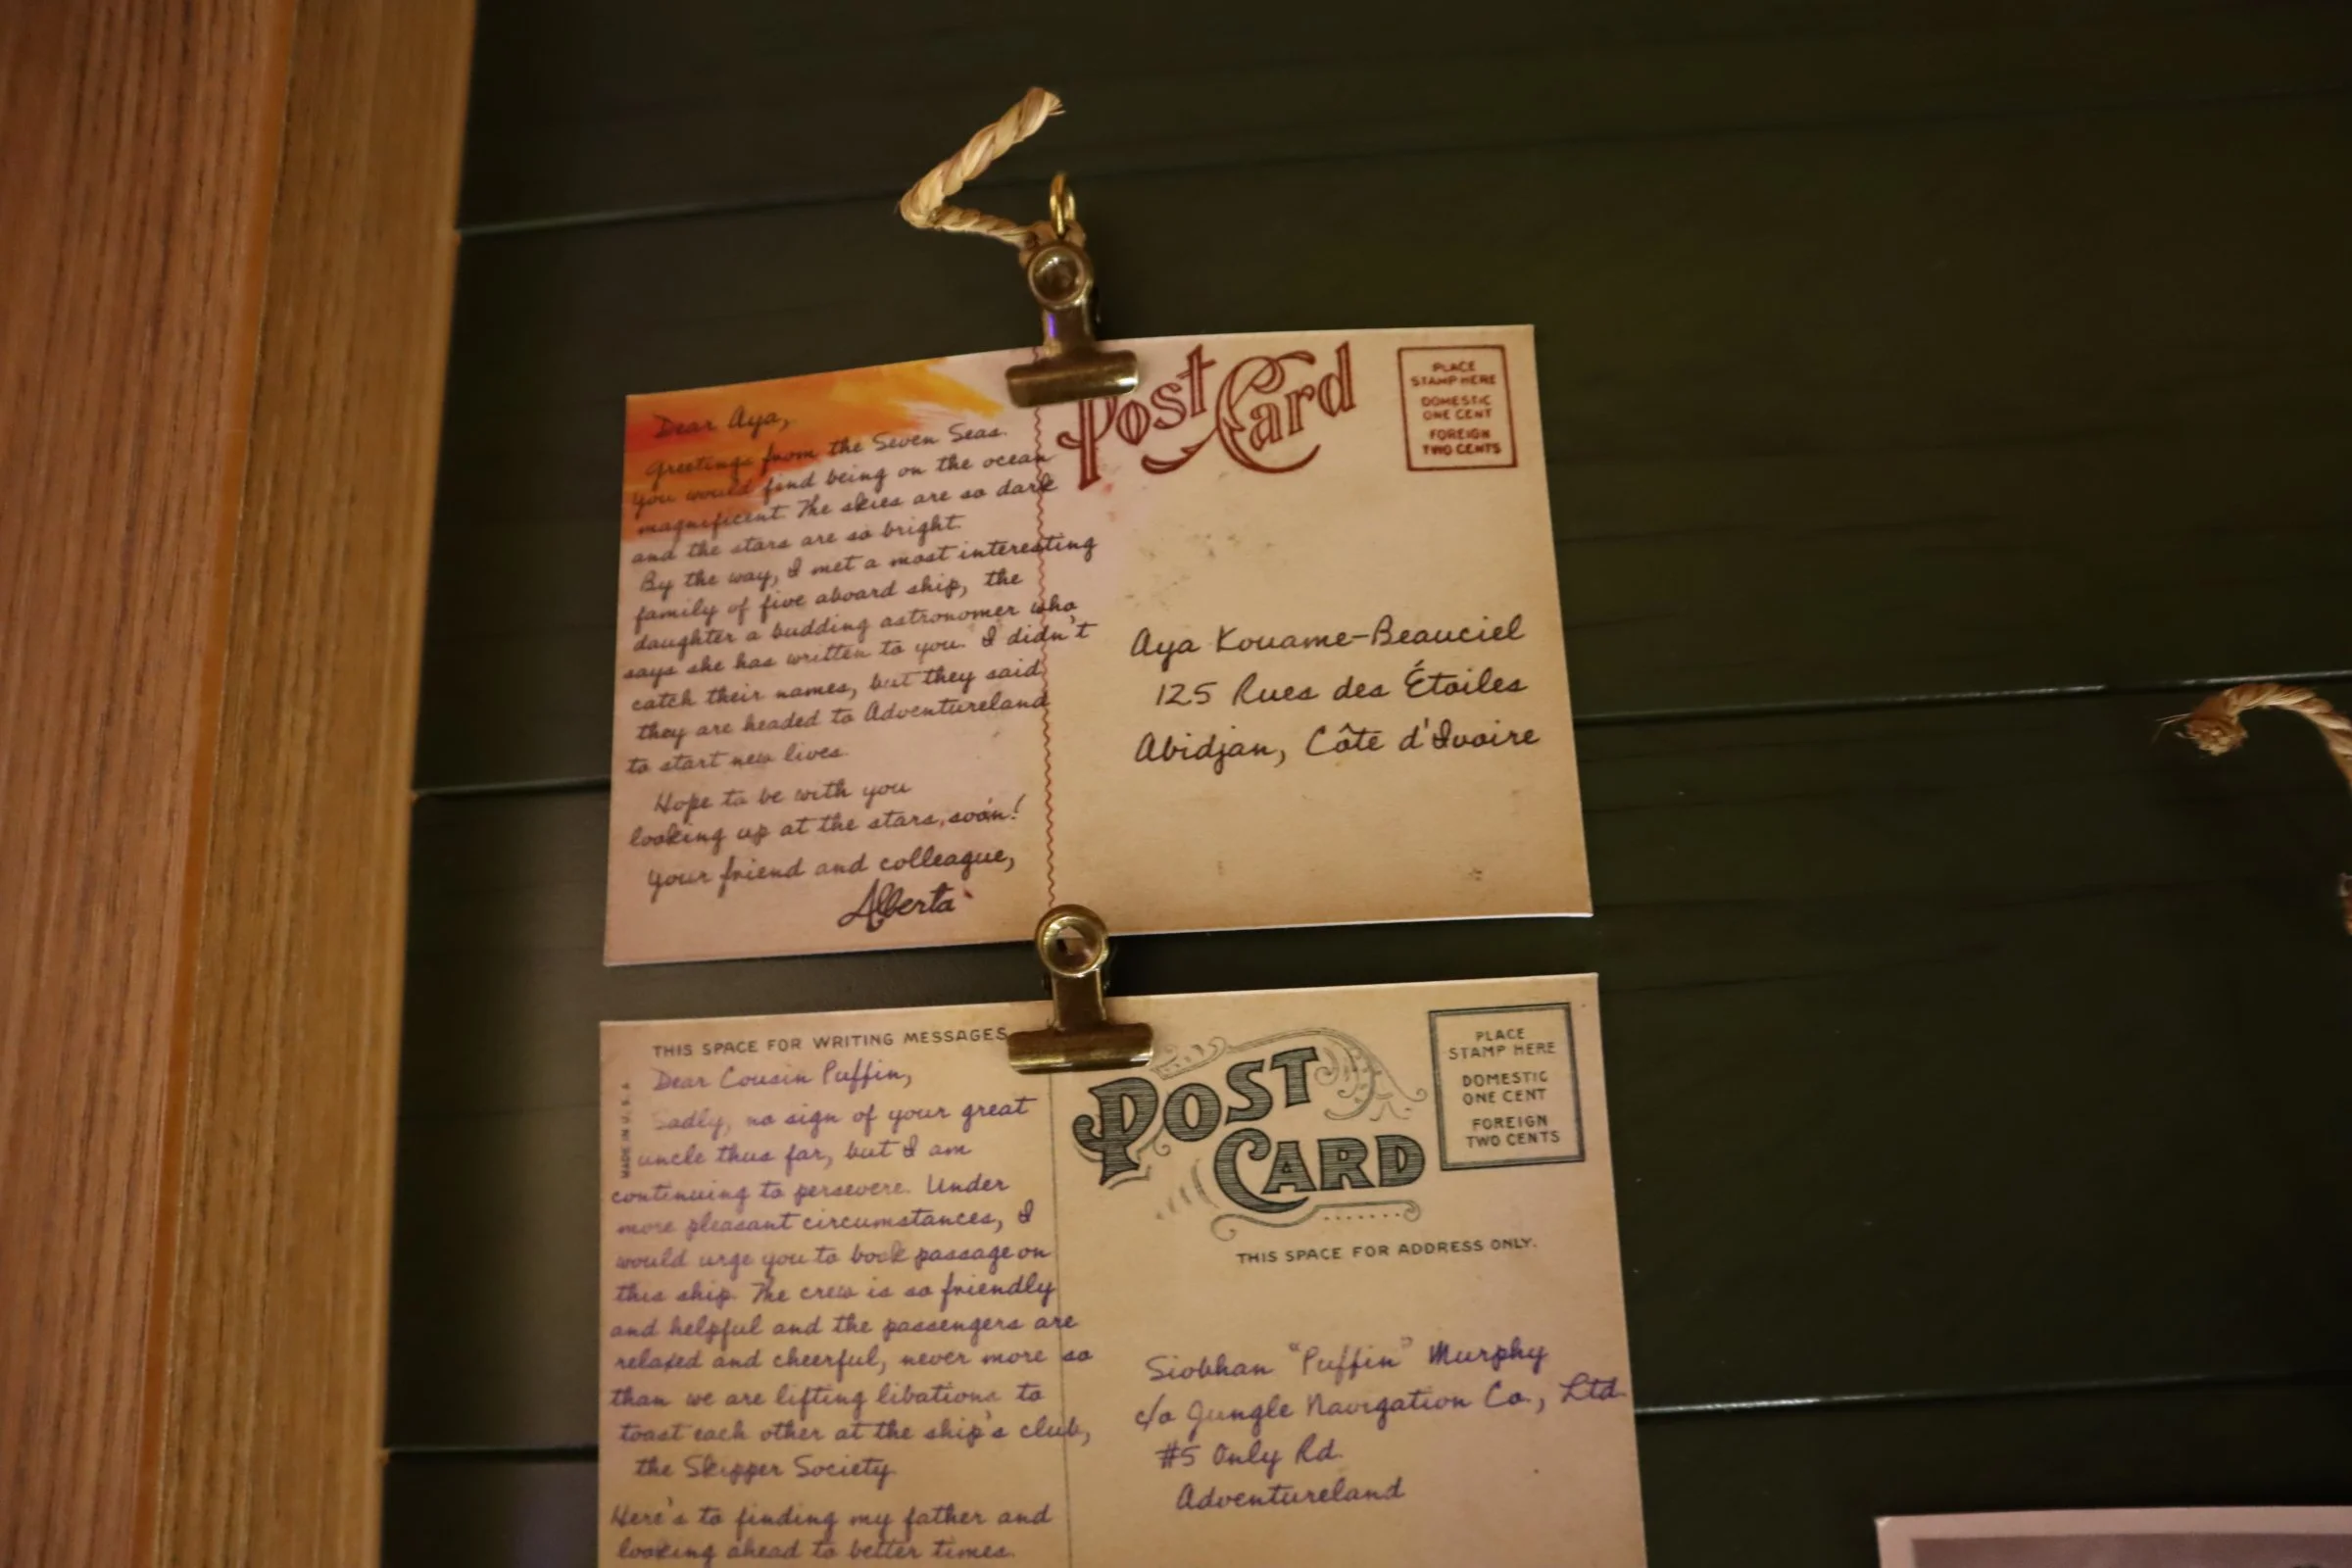 Dear Aya,
Greetings from the Seven Seas.
You would find being on the ocean
magnificent. The skies are so dark
and the stars are so bright.
By the way, I met a most interesting
family of five aboard ship, the
daughter a budding astronomer who
says she has written to you. I didn't
catch their names, but they said
they are headed to Adventureland
to start new lives.
Hope to be with you
looking up at the stars, soon!
Your friend and colleague,
Alberta
Post Card
PLACE
STAMP HERE
DOMESTIC
ONE CENT
FOREIGN
TWO CENTS
Aya Kouame-Beauciel
125 Rues des Étoiles
Abidjan, Côte d'Ivoire
THIS SPACE FOR WRITING MESSAGES
MADE IN U.S.A
Dear Cousin Puffin,
Sadly, no sign of your great
uncle thus far, but I am
continuing to persevere. Under
more pleasant circumstances, I
would urge you to book passage on
this ship. The crew is so friendly
and helpful and the passengers are
relaxed and cheerful, never more so
than we are lifting libations to
toast each other at the ship's club,
the Skipper Society.
Here's to finding my father and
looking ahead to better times.
POST
CARD
PLACE
STAMP HERE
DOMESTIC
ONE CENT
FOREIGN
TWO CENTS
THIS SPACE FOR ADDRESS ONLY.
Siobhan "Puffin" Murphy
c/o Jungle Navigation Co., Ltd.
#5 Only Rd.
Adventureland